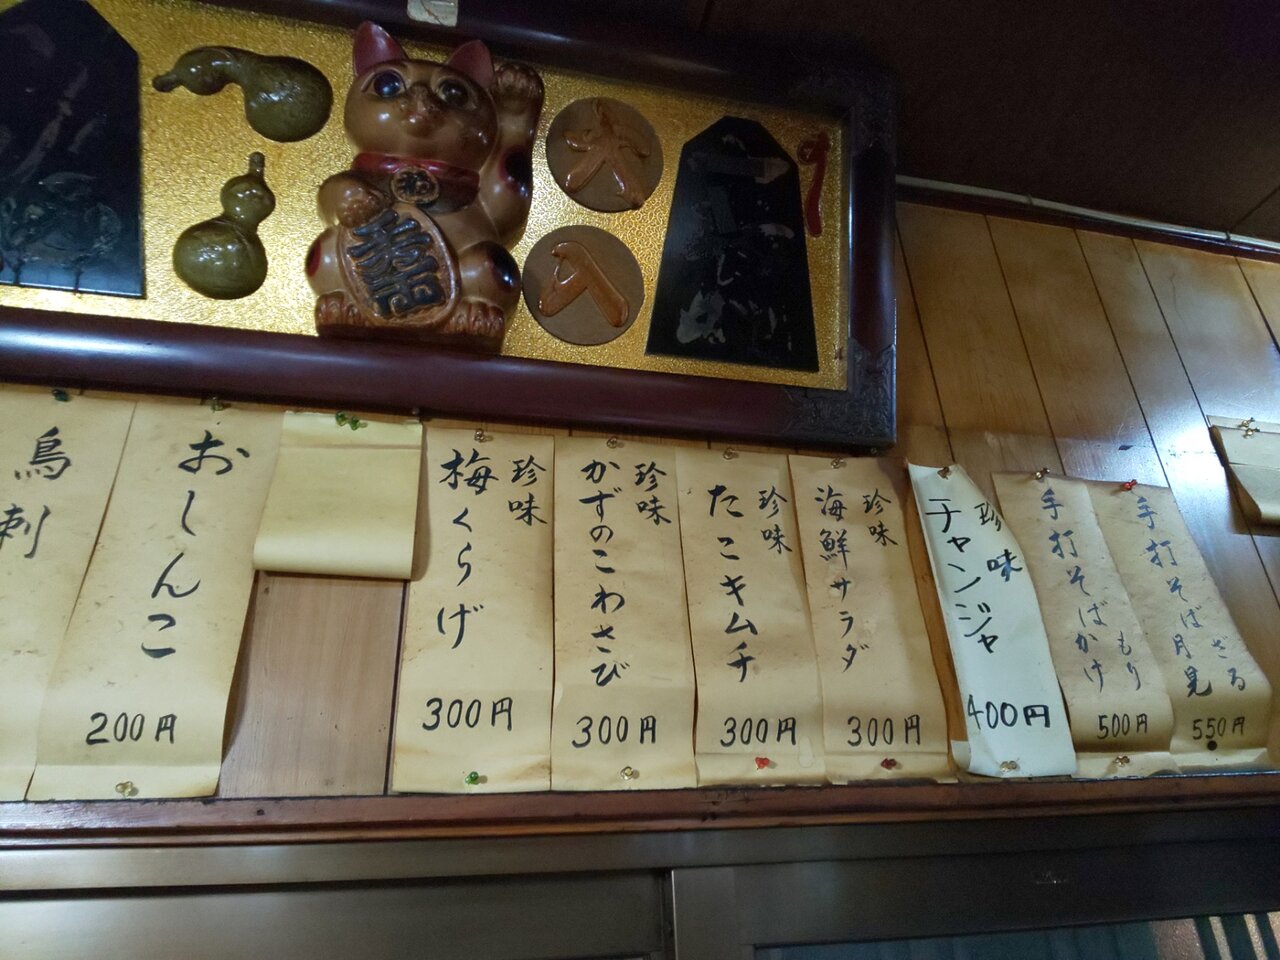 大
入
鳥刺
おしんこ
200円
珍味
梅くらげ
300円
珍味
かずのこわさび
300円
珍味
たこキムチ
300円
珍味
海鮮サラダ
300円
珍味
チャンジャ
400円
手打そばかけ
もり
500円
手打そば月見
ざる
550円